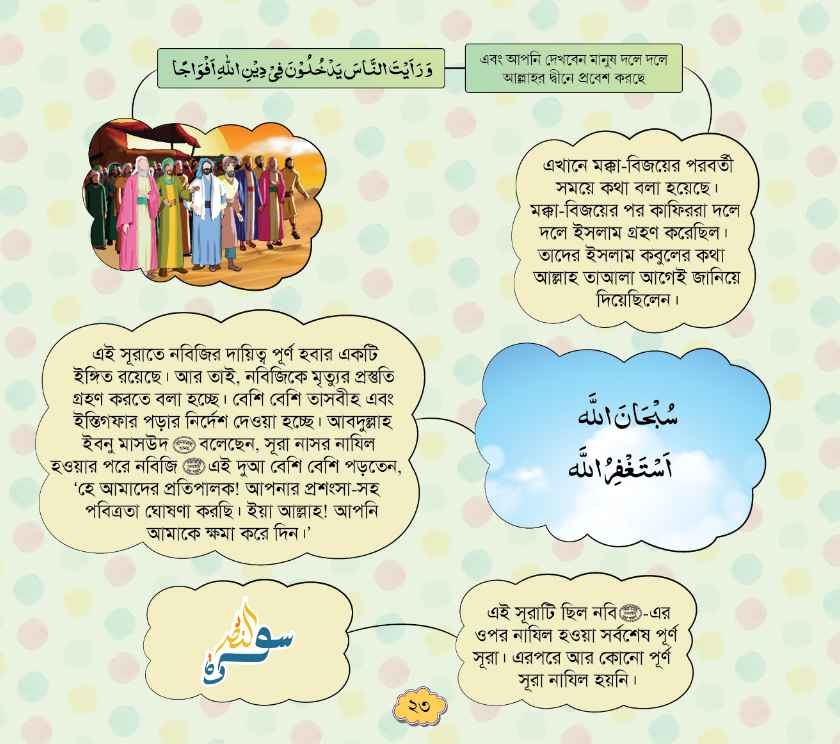 وَرَاَيْتَ النَّاسَ يَدْخُلُوْنَ فِيْ دِيْنِ اللّٰهِ اَفْوَاجًا
এবং আপনি দেখবেন মানুষ দলে দলে
আল্লাহর দ্বীনে প্রবেশ করছে
এখানে মক্কা-বিজয়ের পরবর্তী
সময়ে কথা বলা হয়েছে।
মক্কা-বিজয়ের পর কাফিররা দলে
দলে ইসলাম গ্রহণ করেছিল।
তাদের ইসলাম কবুলের কথা
আল্লাহ তাআলা আগেই জানিয়ে
দিয়েছিলেন।
এই সূরাতে নবিজির দায়িত্ব পূর্ণ হবার একটি
ইঙ্গিত রয়েছে। আর তাই, নবিজিকে মৃত্যুর প্রস্তুতি
গ্রহণ করতে বলা হচ্ছে। বেশি বেশি তাসবীহ এবং
ইস্তিগফার পড়ার নির্দেশ দেওয়া হচ্ছে। আবদুল্লাহ
ইবনু মাসউদ বলেছেন, সূরা নাসর নাযিল
হওয়ার পরে নবিজি এই দুআ বেশি বেশি পড়তেন,
‘হে আমাদের প্রতিপালক! আপনার প্রশংসা-সহ
পবিত্রতা ঘোষণা করছি। ইয়া আল্লাহ! আপনি
আমাকে ক্ষমা করে দিন।’
سُبْحَانَ اللَّه
اَسْتَغْفِرُ اللَّه
سورة النصر
এই সূরাটি ছিল নবি-এর
ওপর নাযিল হওয়া সর্বশেষ পূর্ণ
সূরা। এরপরে আর কোনো পূর্ণ
সূরা নাযিল হয়নি।
২৩